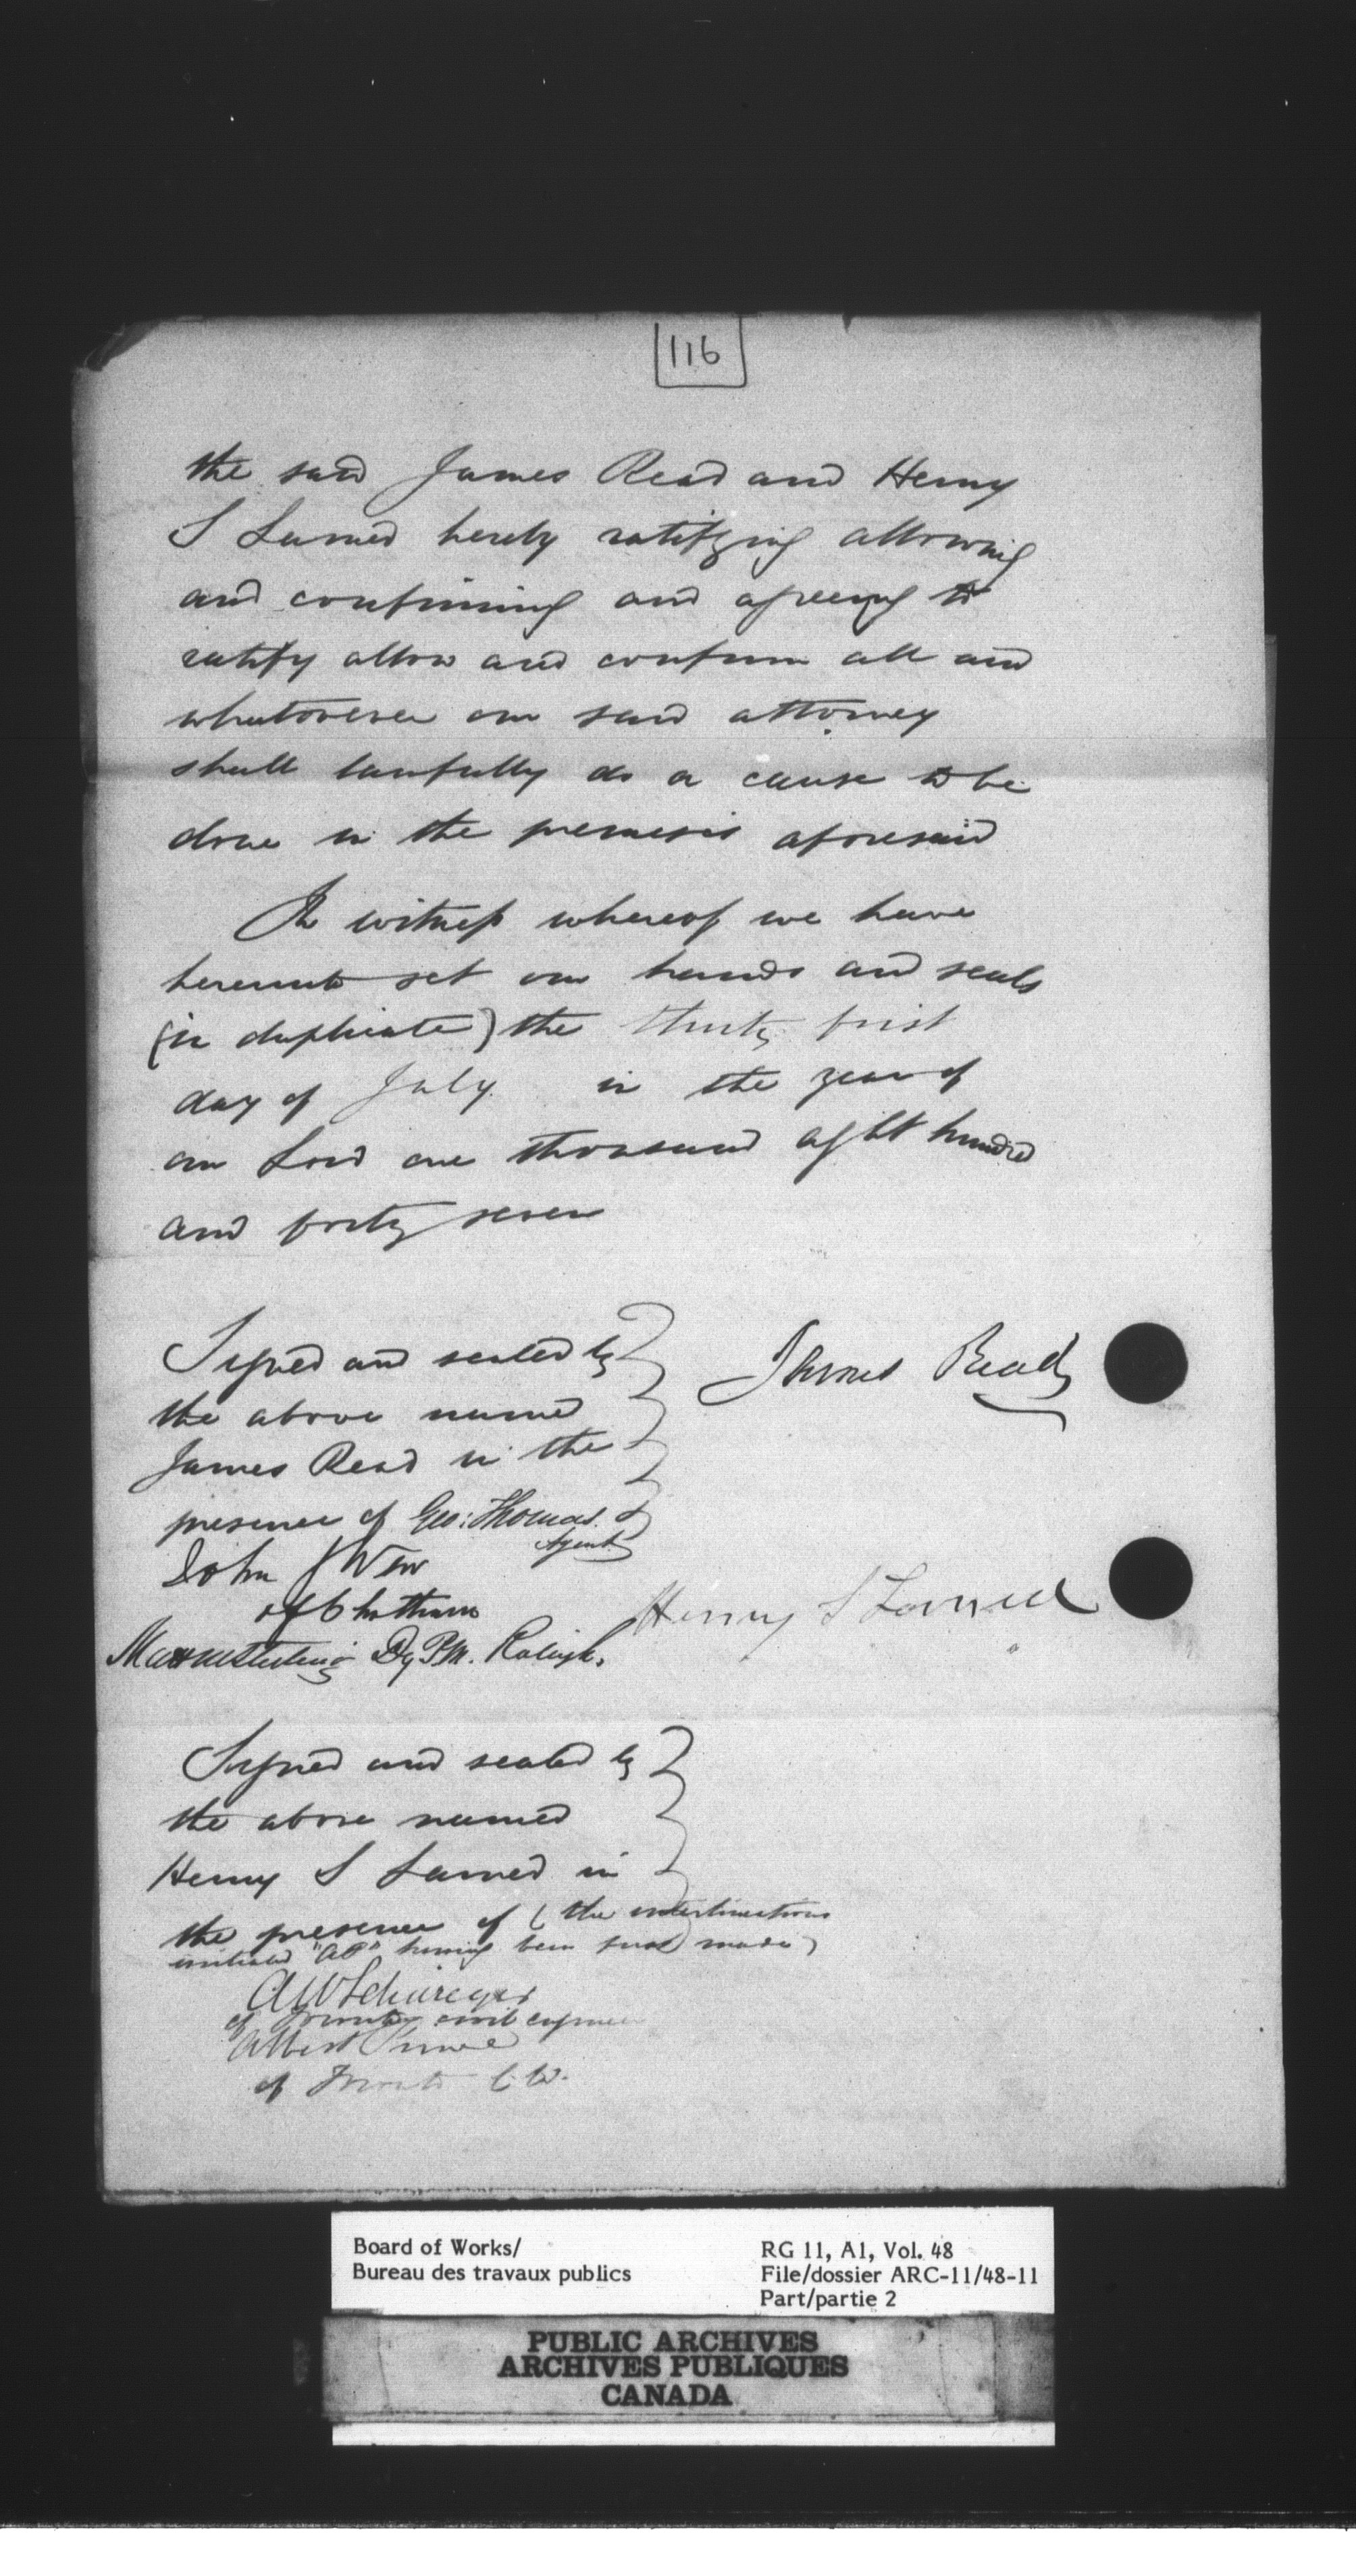 116
the said James Read and Henry
S Larned hereby ratifying allowing
and confirming and agreeing to
ratify allow and confirm all and
whatsoever our said attorney
shall lawfully do or cause to be
done in the premises aforesaid
In witness whereof we have
hereunto set our hands and seals
(in duplicate) the thirty first
day of July in the year of
our Lord one thousand eight hundred
and forty seven
Signed and sealed by
the above named
James Read in the
presence of Geo: Thomas.
Agent
John
of Chatham
Dy P.M. Raleigh.
James Read
Henry S Larned
Signed and sealed by
the above named
Henry S Larned in
the presence of (the interlineations
initialed having been first made)
of Toronto civil engineer
Albert
of Toronto C.W.
Board of Works/
Bureau des travaux publics
RG 11, A1, Vol. 48
File/dossier ARC-11/48-11
Part/partie 2
PUBLIC ARCHIVES
ARCHIVES PUBLIQUES
CANADA